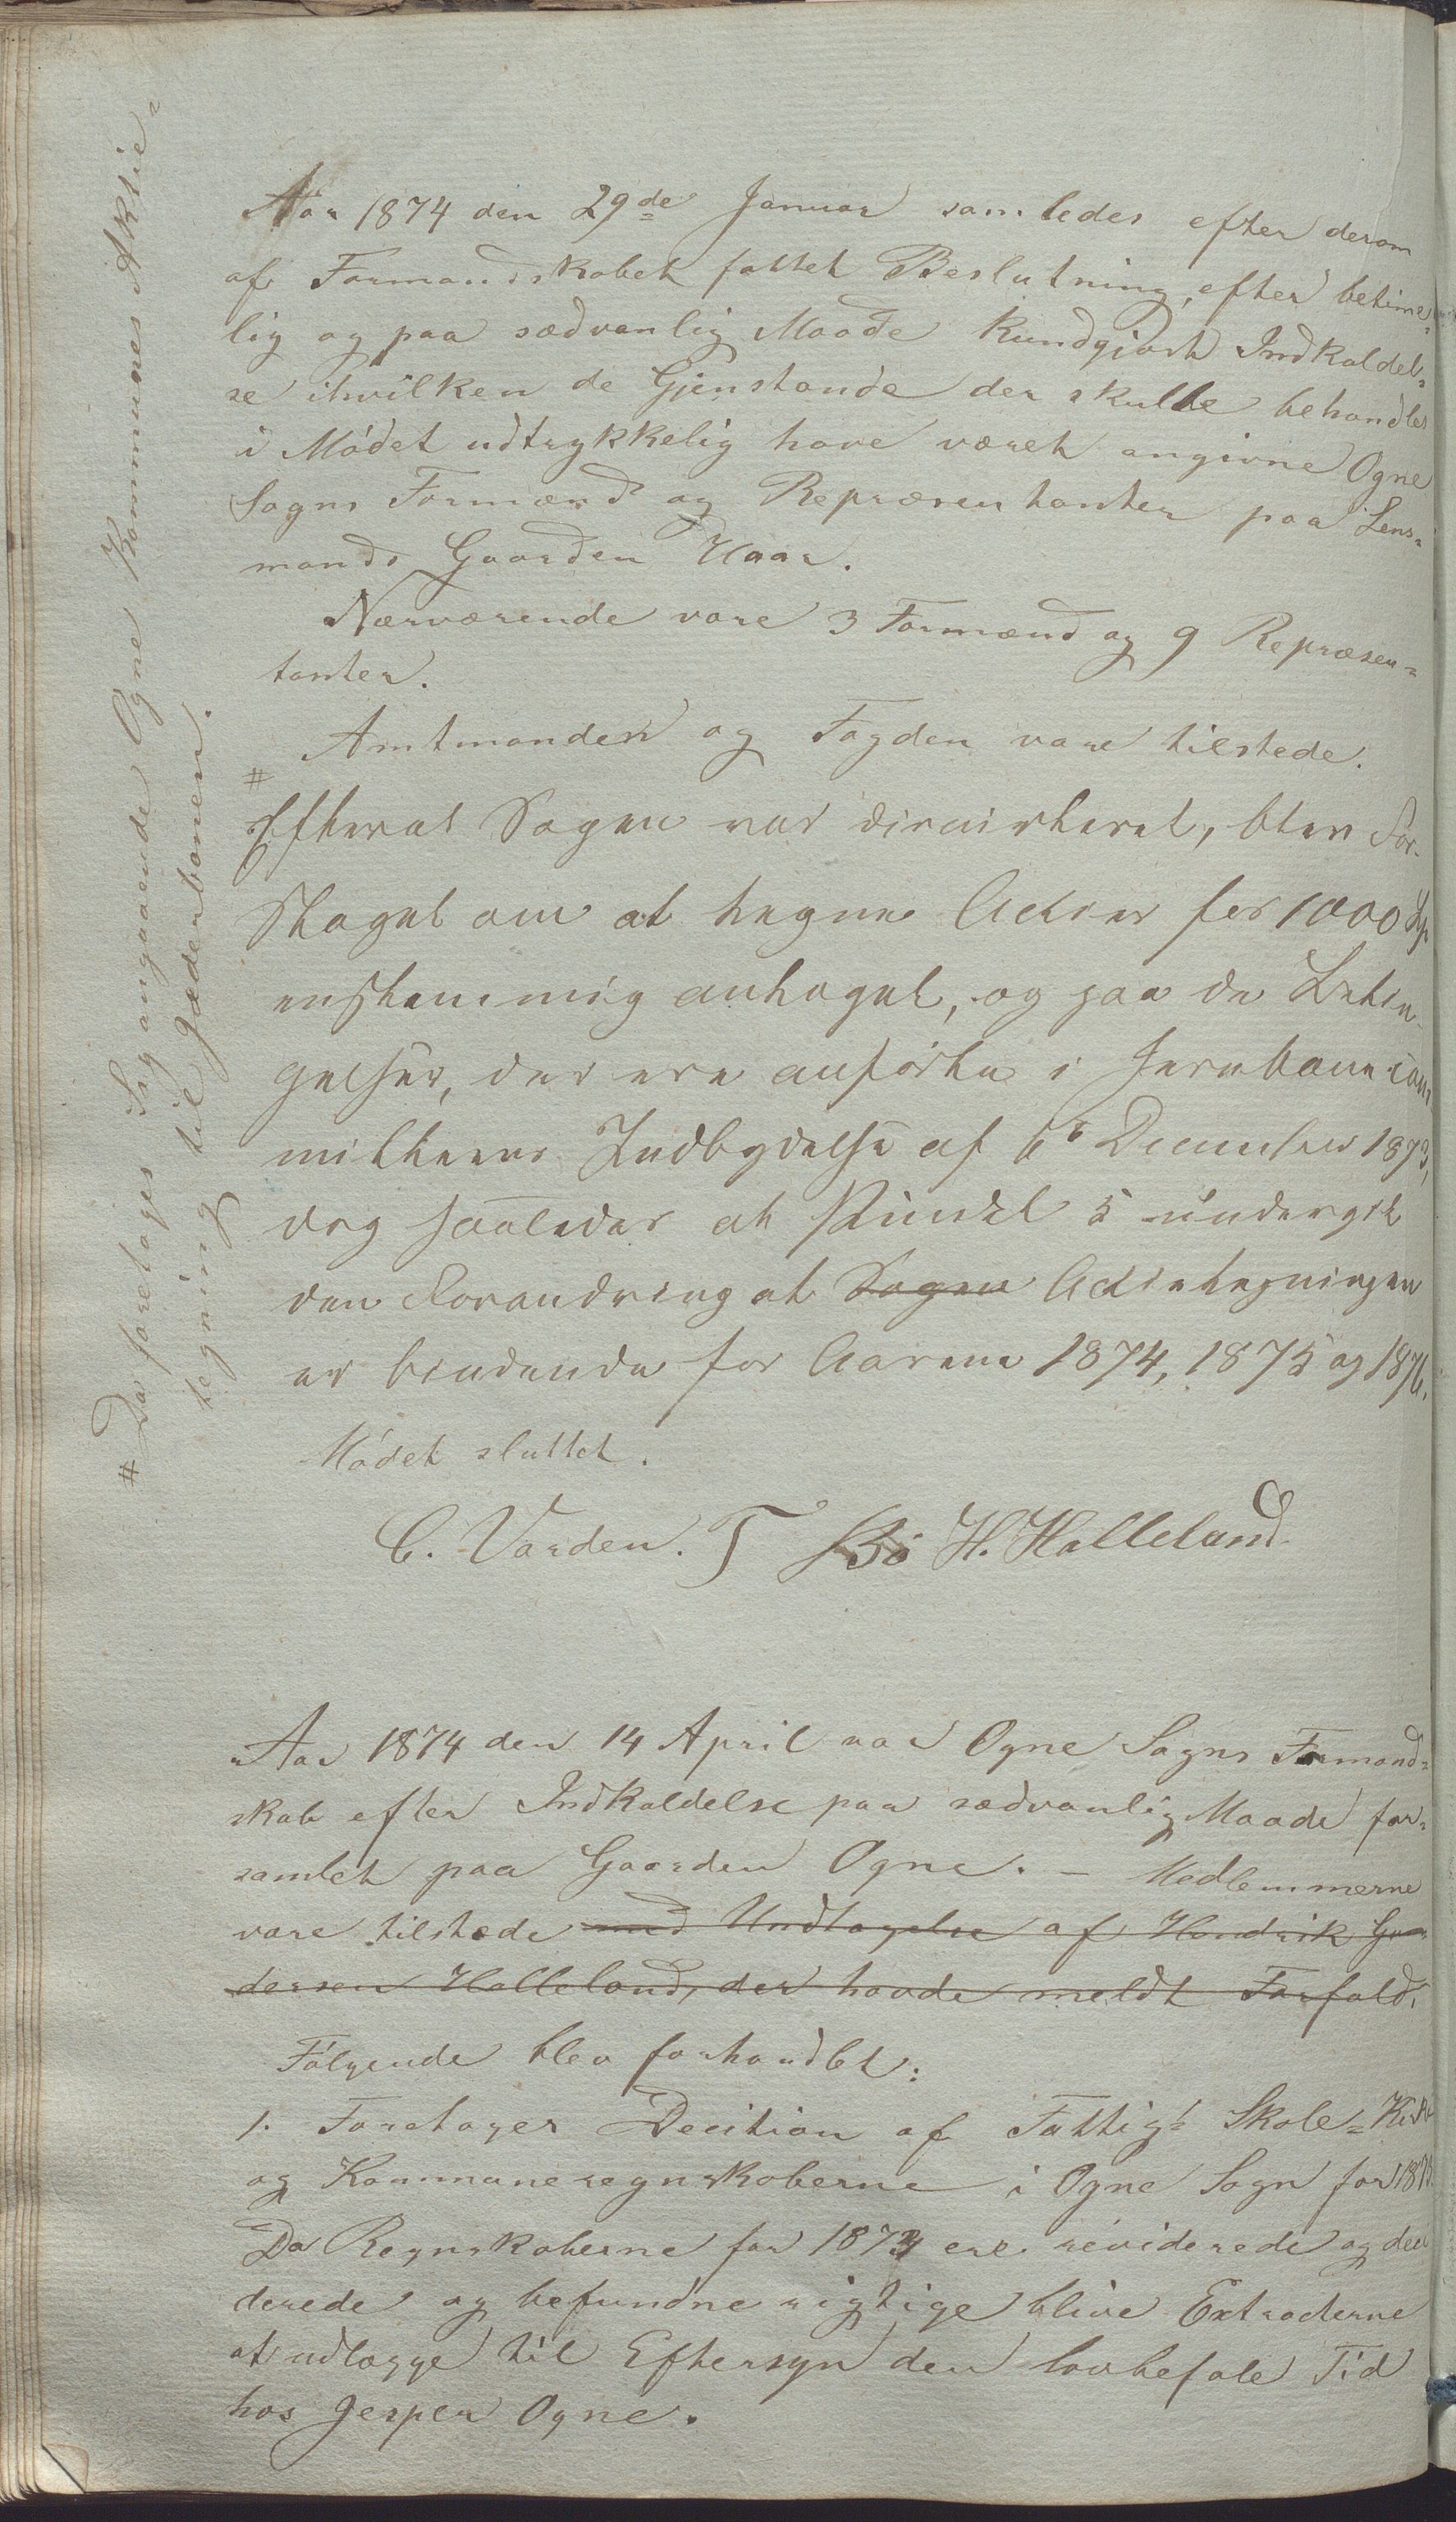 Aar 1874 den 29de Januar samledes efter derom
af Formandskabet fattet Beslutning, efter betime-
lig og paa sædvanlig Maade kundgjort Indkaldel-
se ihvilken de Gjenstande der skulle behandles
i Mødet udtrykkelig have været angivne Ogne
Sogns Formænd og Repræsentanter paa Lens-
mands Gaarden Haar.
Nærværende vare 3 Formænd og 9 Repræsen-
tanter.
Amtmanden og Fogden vare tilstede.
#
Efterat Sagen var discuteret, blev For-
slaget om at tegne Actier for 1000 Sp
enstemmig antaget, og paa de Betin-
gelser, der ere anførte i Jernbanecom
mitteens Indbydelse af 6te December 1873,
dog saaledes at Punct 5 undergik
den Forandring at Sagen Actietegningen
er bindende for Aarene 1874, 1875 og 1876.
Mødet sluttet.
C. Varden. T Bø H. Halleland
# Da foretoges Sag angaaende Ogne Kommunes Aktie-
tegning til Jæderbanen.
Aar 1874 den 14 April var Ogne Sogns Formand-
skab efter Indkaldelse paa sædvanlig Maade for-
samlet paa Gaarden Ogne. - Medlemmerne
vare tilstede med Undtagelse af Hendrik Gun
dersen Halleland, der havde meldt Forfald.
Følgende blev forhandlet:
1. Foretoges Decition af Fattig- Skole- Kirke
og Kommuneregnskaberne i Ogne Sogn for 1873
Da Regnskaberne for 1873 ere reviderede og deci
derede og befundne rigtige blive Extracterne
at udlægge til Eftersyn den lovbefale Tid
hos Jesper Ogne.